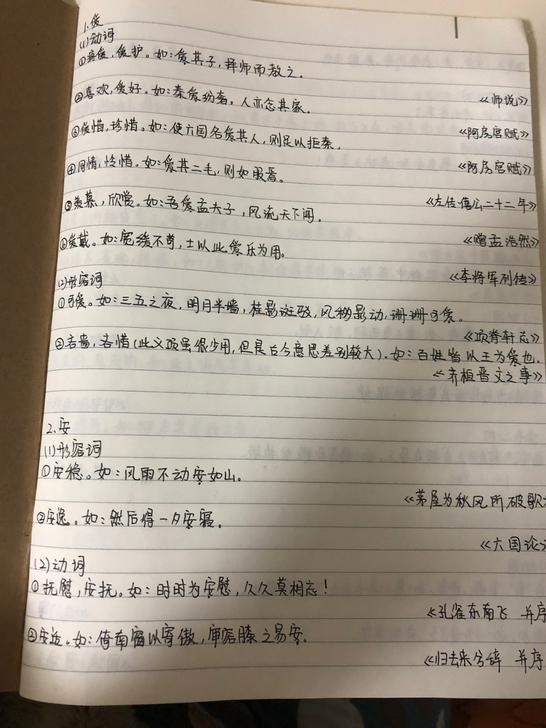 1.爱
(1)动词
①疼爱,爱护。如:爱其子,择师而教之。
《师说》
②喜欢,爱好。如:秦爱纷奢,人亦念其家。
《阿房宫赋》
③爱惜,珍惜。如:使六国各爱其人,则足以拒秦。
《阿房宫赋》
④同情,怜惜。如:爱其二毛,则如服焉。
《左传·僖公二十二年》
⑤爱慕,欣赏。如:吾爱孟夫子,风流天下闻。
《赠孟浩然》
⑥爱戴。如:宽缓不苛,士以此爱乐为用。
《李将军列传》
(2)形容词
①可爱。如:三五之夜,明月半墙,桂影斑驳,风移影动,珊珊可爱。
《项脊轩志》
②吝啬,吝惜(此义项虽很少用,但是古今意思差别较大)。如:百姓皆以王为爱也。
《齐桓晋文之事》
2.安
(1)形容词
①安稳。如:风雨不动安如山。
《茅屋为秋风所破歌
②安逸。如:然后得一夕安寝。
《六国论》
(2)动词
①抚慰,安抚。如:时时为安慰,久久莫相忘!
《孔雀东南飞 并序
②安适。如:倚南窗以寄傲,审容膝之易安。
《归去来兮辞 并序